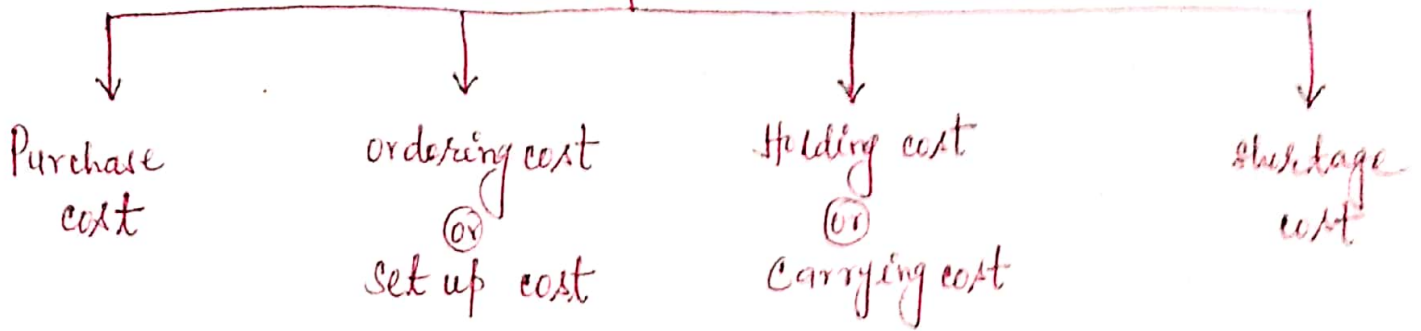 Purchase
cost
ordering cost
or
Set up cost
Holding cost
or
Carrying cost
shortage
cost